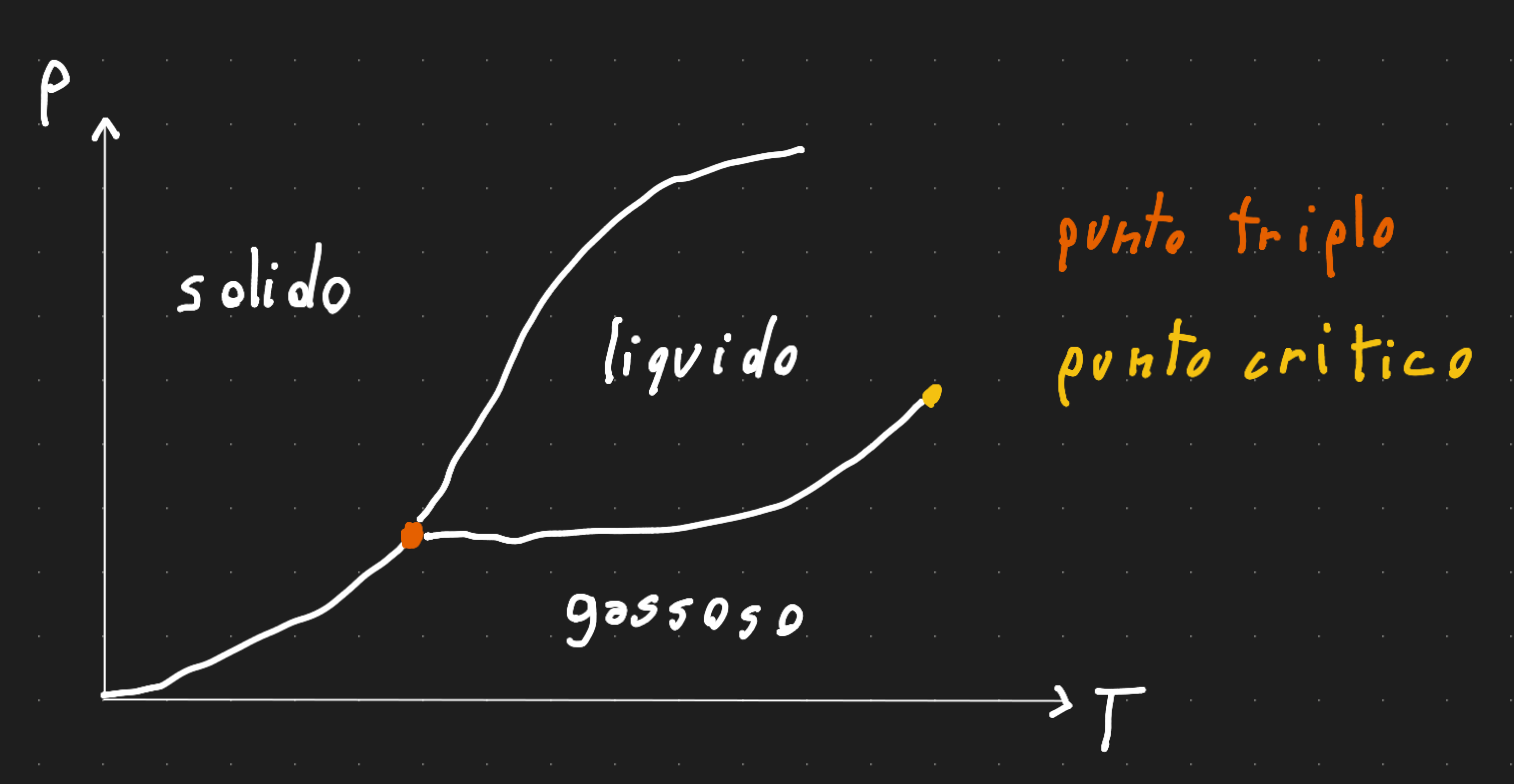 P
solido
liquido
gassoso
T
punto triplo
punto critico